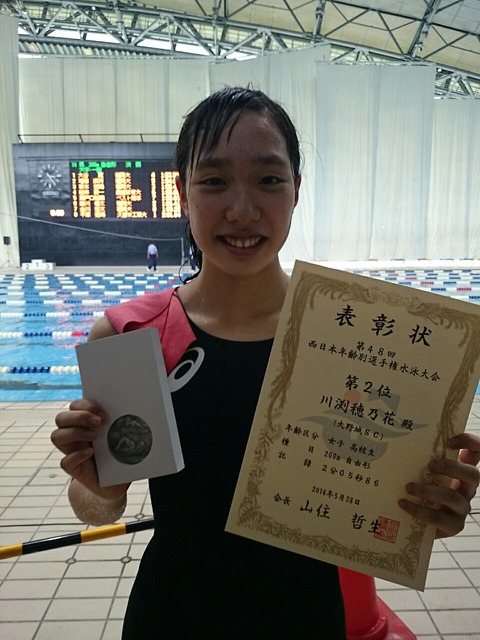 表彰状
第48回
西日本年齢別選手権水泳大会
第2位
川渕穂乃花 殿
(大野城SC)
年齢区分 女子 高校生
種目 200m 自由形
記録 2分05秒86
2016年5月28日
会長 山住 哲生